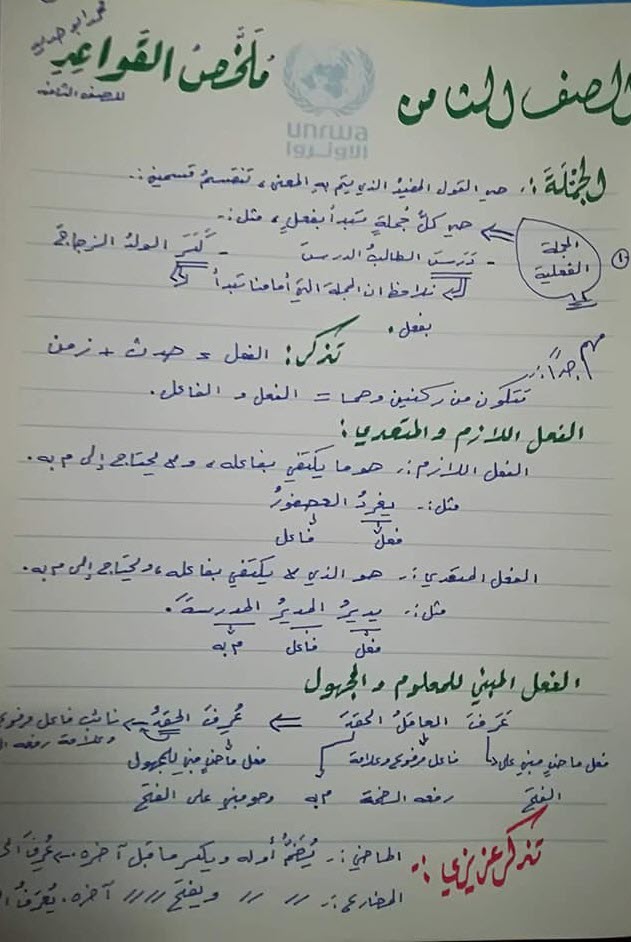 محمد أبو حدايد
الصف الثامن
unrwa
الأونروا
مُلَخَّصُ القَواعِدِ
للصف الثامن
الجُمْلَةُ :. هي القول المفيدُ الذي يتم به المعنى، تنقسمُ قسمين :.
① الجملة الفعلية
هي كلُّ جُملةٍ تبدأ بفعلٍ، مثل :.
- دَرَسَ الطالبُ الدرسَ - كَسَرَ الولدُ الزجاجَ
نلاحظ ان الجملة التي أمامنا تبدأ
بفعل.
تذكر: الفعل = حدث + زمن
مهم جداً :.
تتكون من ركنين وهما = الفعل و الفاعل.
الفعل اللازم والمتعدي:
الفعل اللازم :. هو ما يكتفي بفاعله، ولا يحتاج إلى م به.
مثل :. يغردُ العصفورُ
فعل فاعل
الفعل المتعدي :. هو الذي لا يكتفي بفاعله، ويحتاج إلى م به.
مثل :. يديرُ المديرُ المدرسةَ.
فعل فاعل م به
الفعل المبني للمعلوم والمجهول
عَرَفَ العاقلُ الحقدَ ⇐ عُرِفَ الحقدُ نائب فاعل مرفوع
وعلامة رفعه
فعل ماضٍ مبني على فاعل مرفوع وعلامة فعل ماضٍ مبني للمجهول
الفتح رفعه الضمة م به وهو مبني على الفتح
تذكر عزيزي :.
الماضي :. يُضَمُّ أوله ويكسر ما قبل آخره. ← عُرِفَ
المضارع :. // // ويفتح // // آخره. يُعْرَفُ